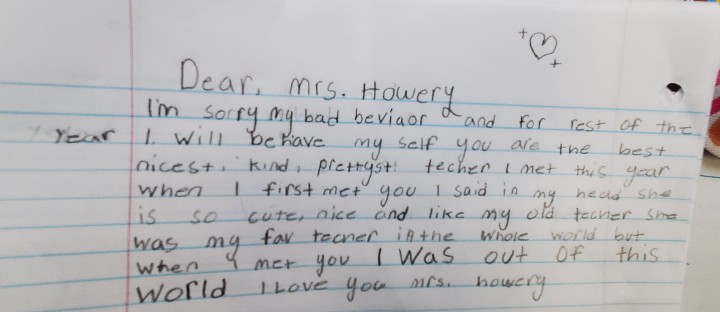 Dear, mrs. Howery
I'm sorry my bad beviaor and for rest of the
year I. will behave my self you are the best
nicest, kind, prettyst techer I met this year
when I first met you I said in my head she
is so cute, nice and like my old techer she
was my fav techer in the whole world but
when I met you I was out of this
world I Love you mrs. howery